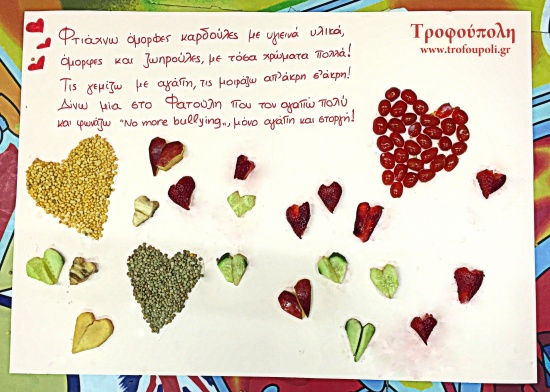 Φτιάχνω όμορφες καρδούλες με υγιεινά υλικά,
όμορφες και ζωηρούλες, με τόσα χρώματα πολλά!
Τις γεμίζω με αγάπη, τις μοιράζω απλόχερα!
Δίνω μια στο Φατούλη που τον αγαπώ πολύ
και φωνάζω "No more bullying", μόνο αγάπη και στοργή!
Τροφούπολη
www.trofoupoli.gr